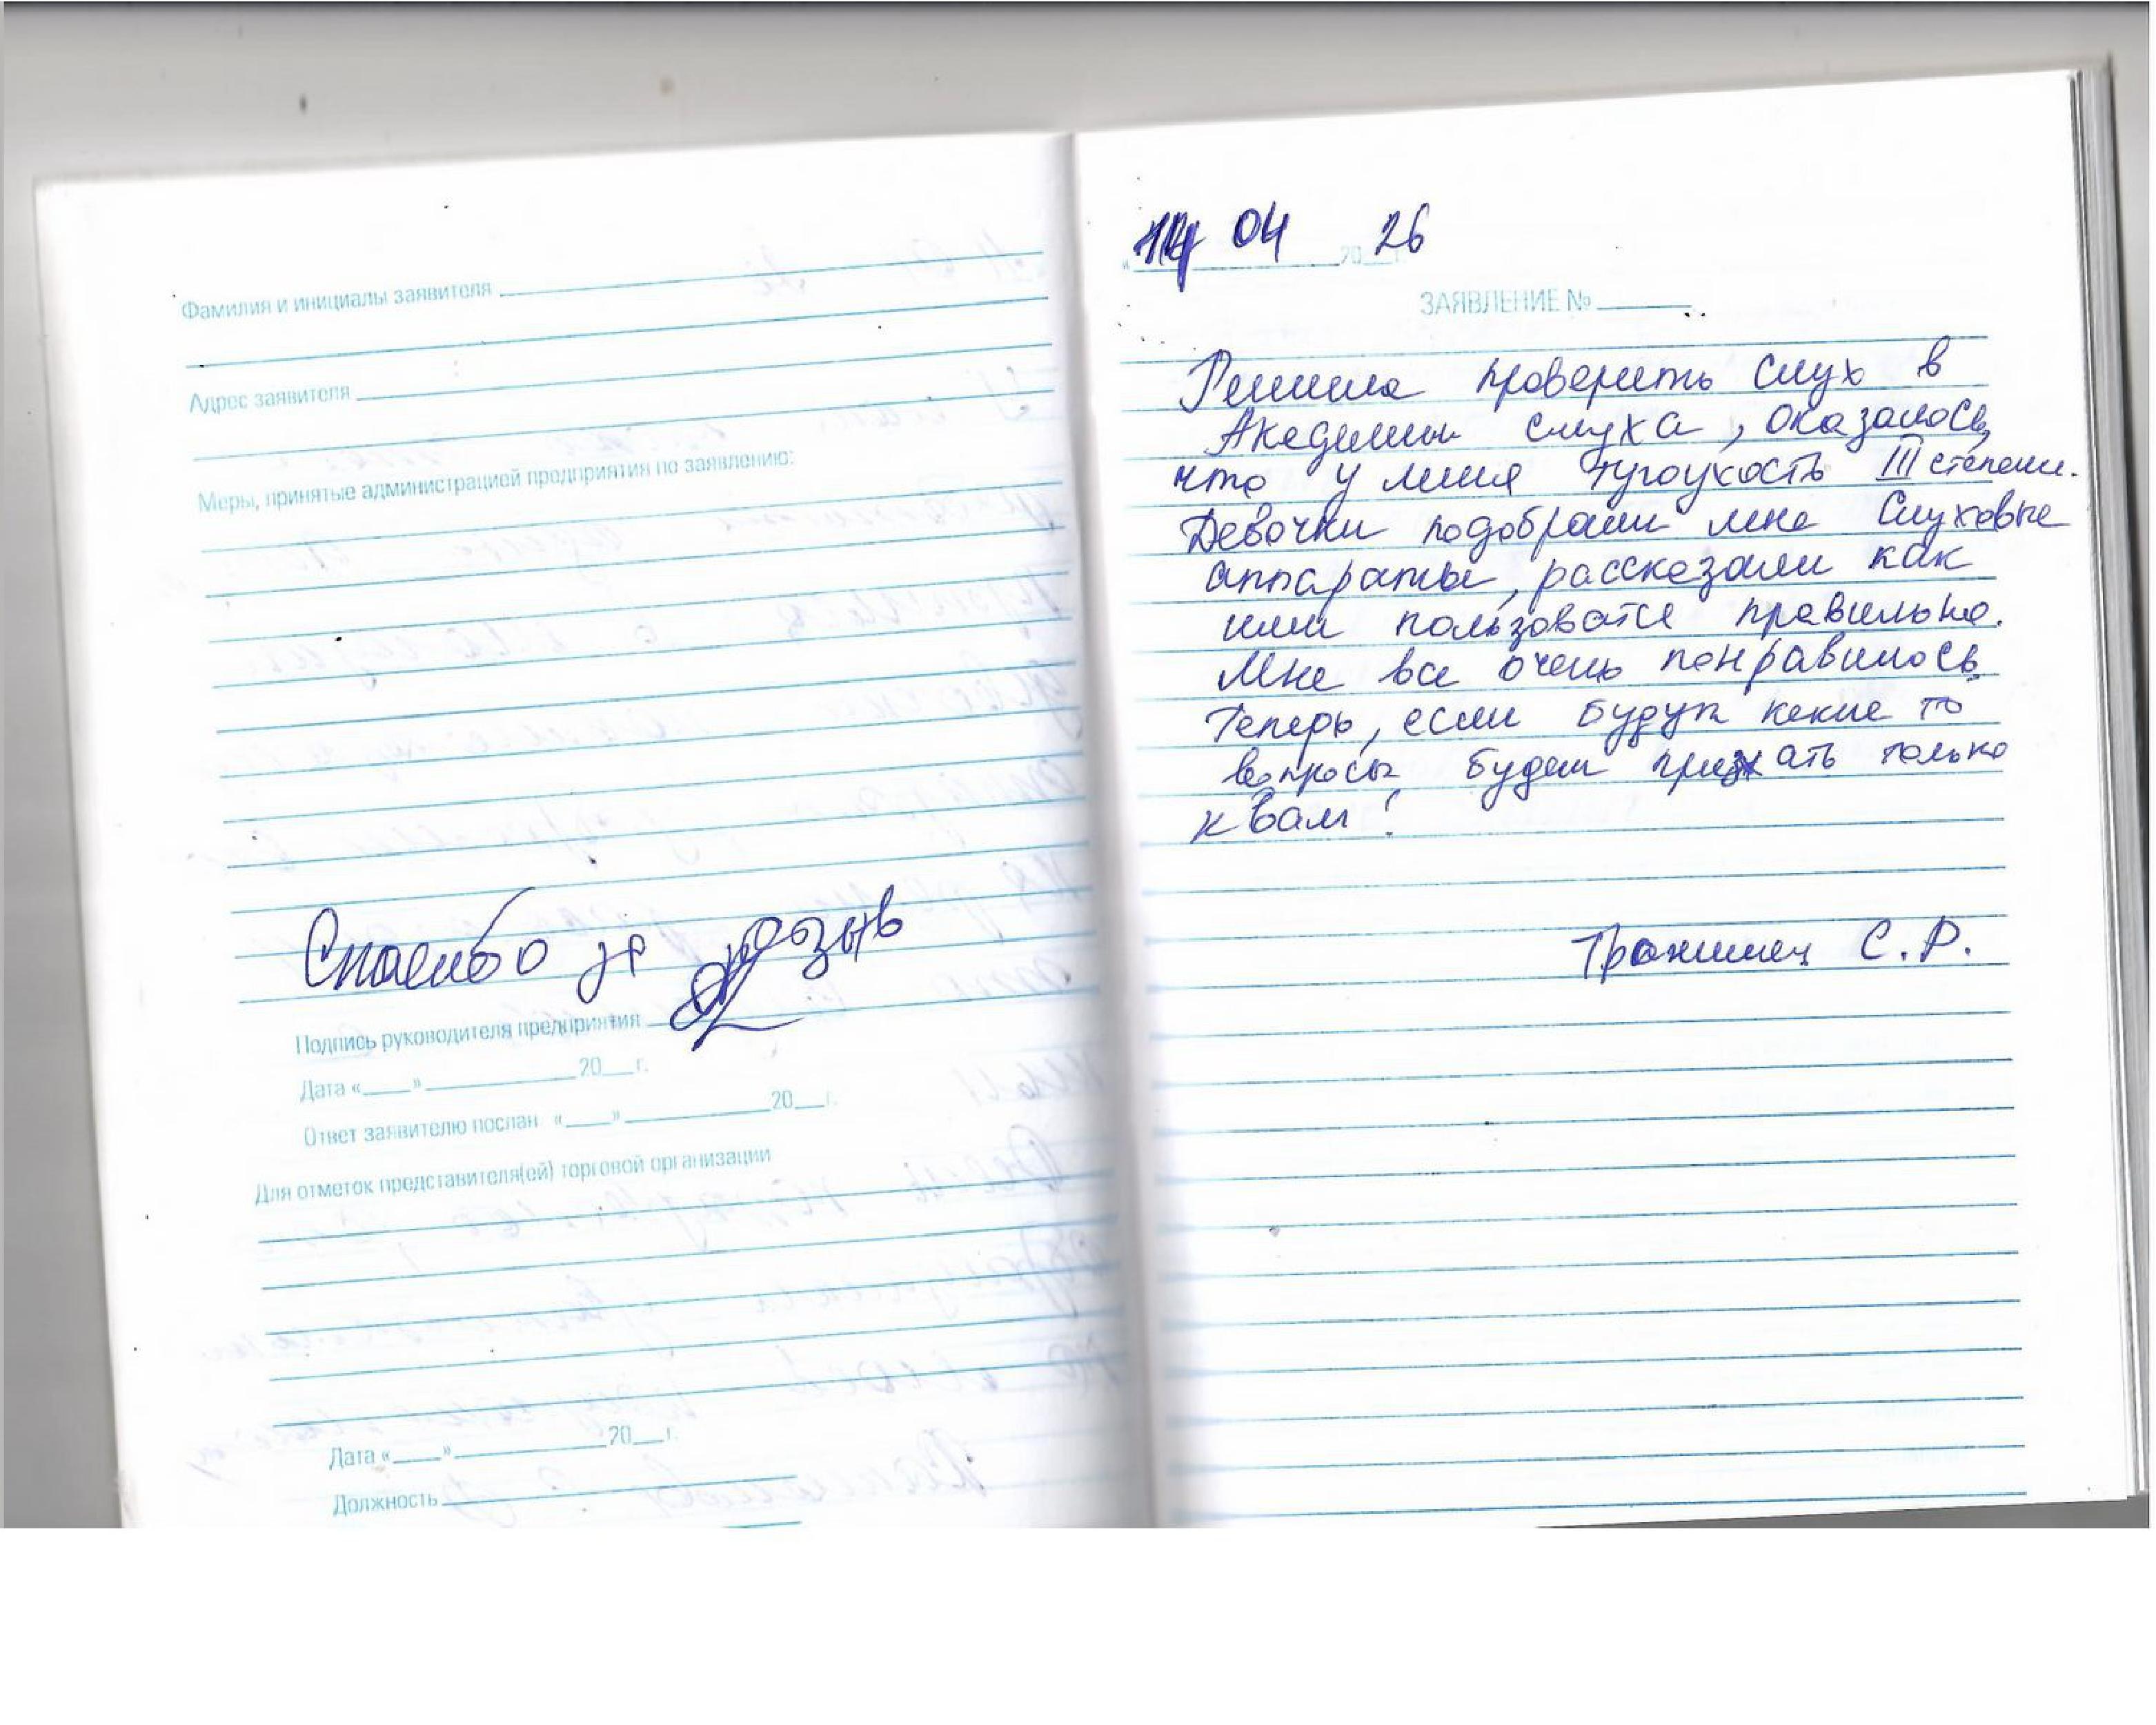 Фамилия и инициалы заявителя
Адрес заявителя
Меры, принятые администрацией предприятия по заявлению:
Спасибо за отзыв
Подпись руководителя предприятия
Дата «___» ________ 20__г.
Ответ заявителю послан «___» ________ 20__г.
Для отметок представителя(ей) торговой организации
Дата «___» ________ 20__г.
Должность
14 04 26
« 20 г.
ЗАЯВЛЕНИЕ № ____
Решила проверить слух в
Академии слуха, оказалось,
что у меня тугоухость III степени.
Девочки подобрали мне слуховые
аппараты, рассказали как
ими пользоватся правильно.
Мне все очень понравилось.
Теперь, если будут какие то
вопросы будем приезжать только
к вам!
С.Р.